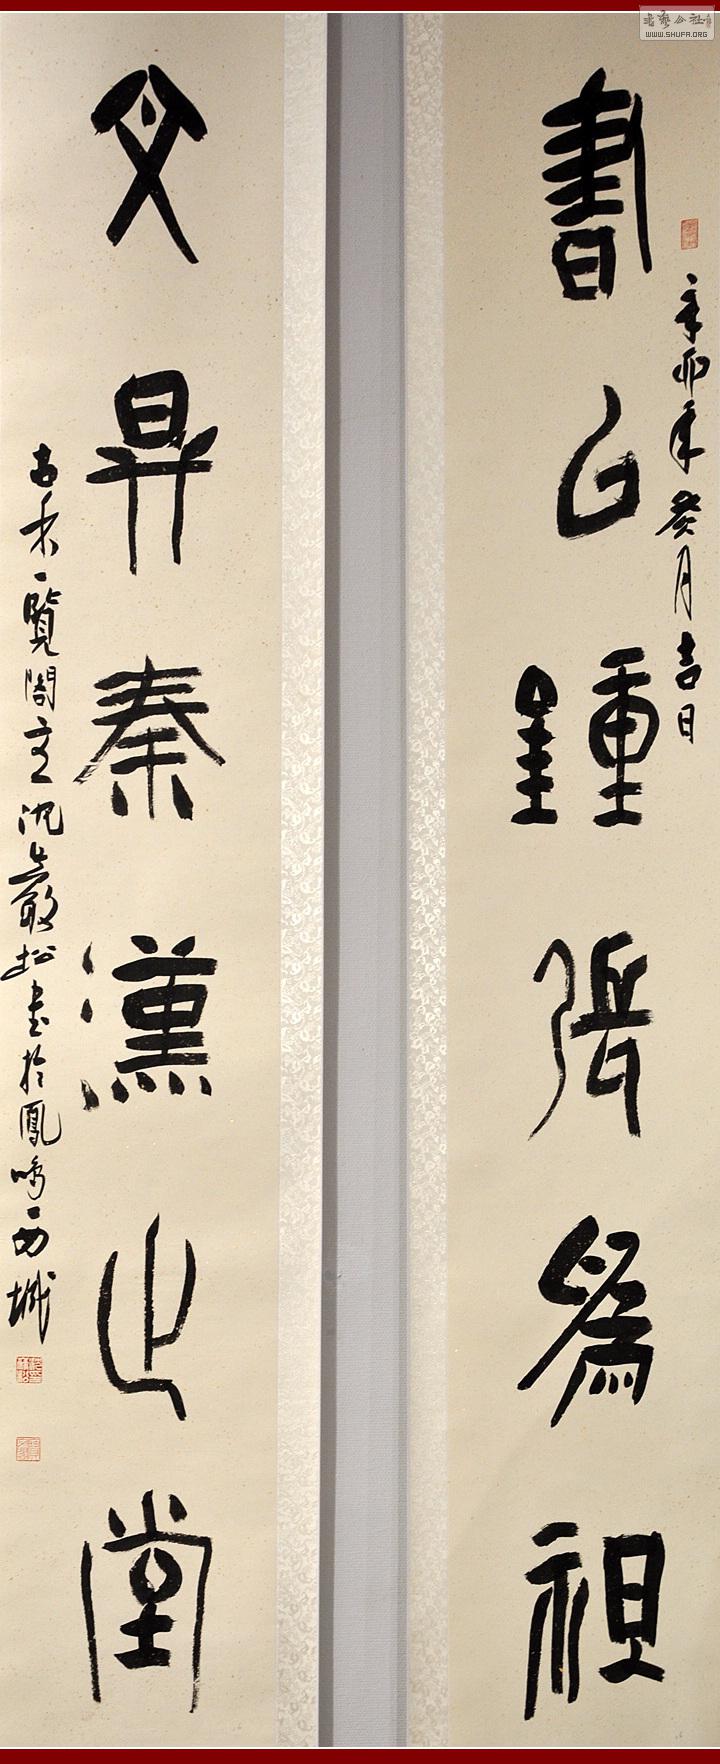 書藝公社
WWW.SHUFA.ORG
辛卯年癸月吉日
書以鍾張爲祖
文昇秦漢之堂
古禾一覽閣主沈巖松書於鳳鳴西城